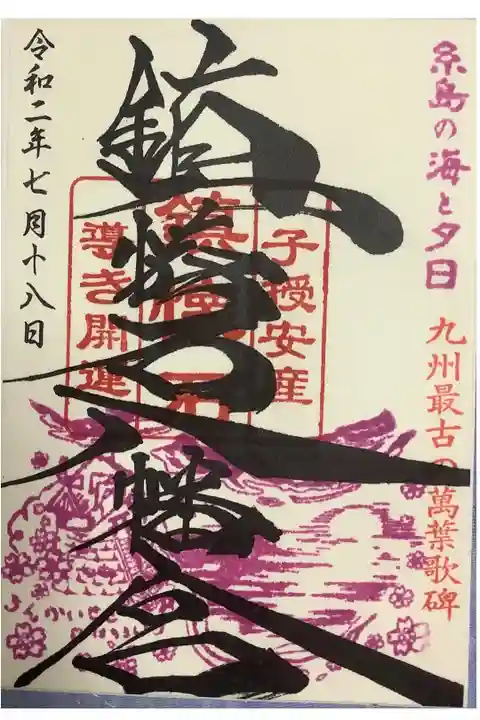 糸島の海と夕日
九州最古の萬葉歌碑
子授安産
鎮懐石
導き開運
鎮懐石八幡宮
令和二年七月十八日
ちんかいせき